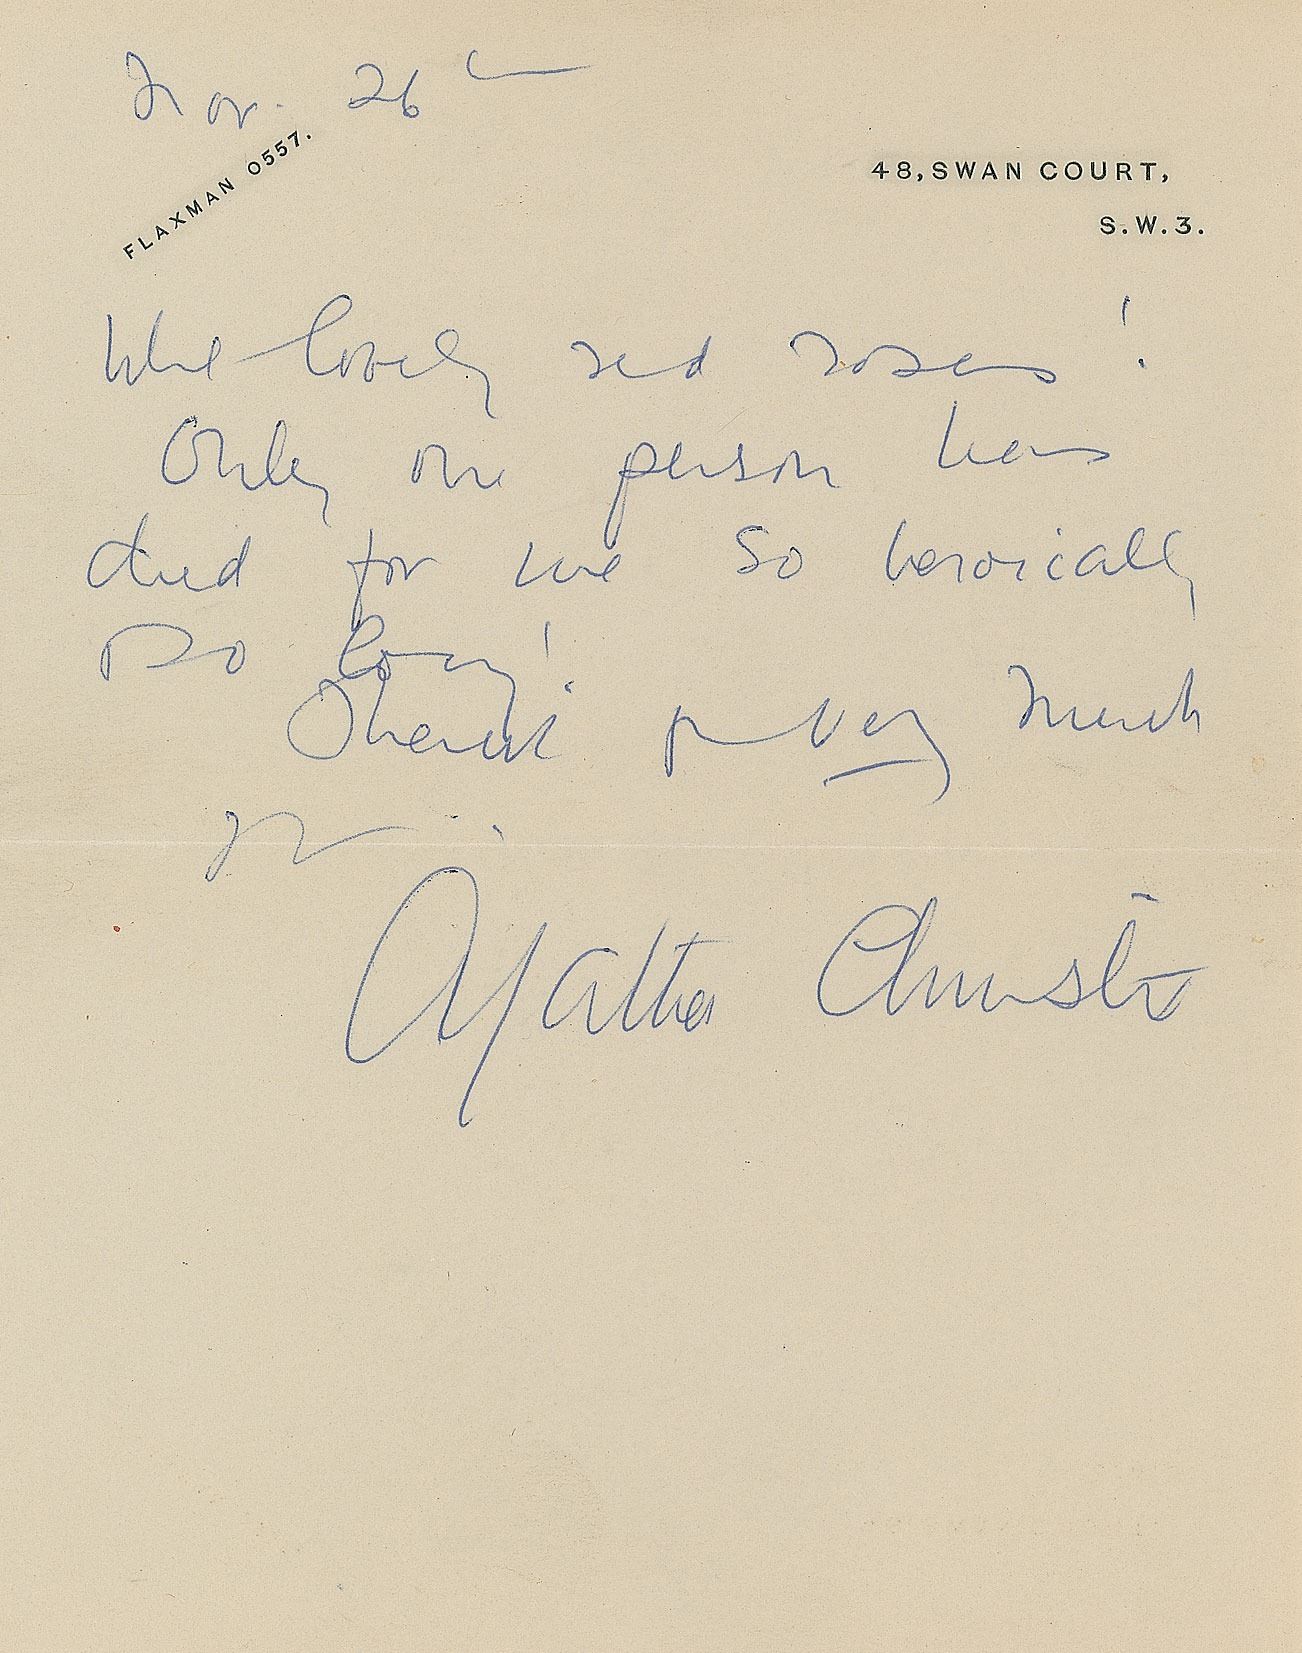 Nov. 26th
FLAXMAN 0557.
48, SWAN COURT,
S.W.3.
What lovely red roses!
Only one person has
died for me so heroically
so long!
Thank you very much
Agatha Christie